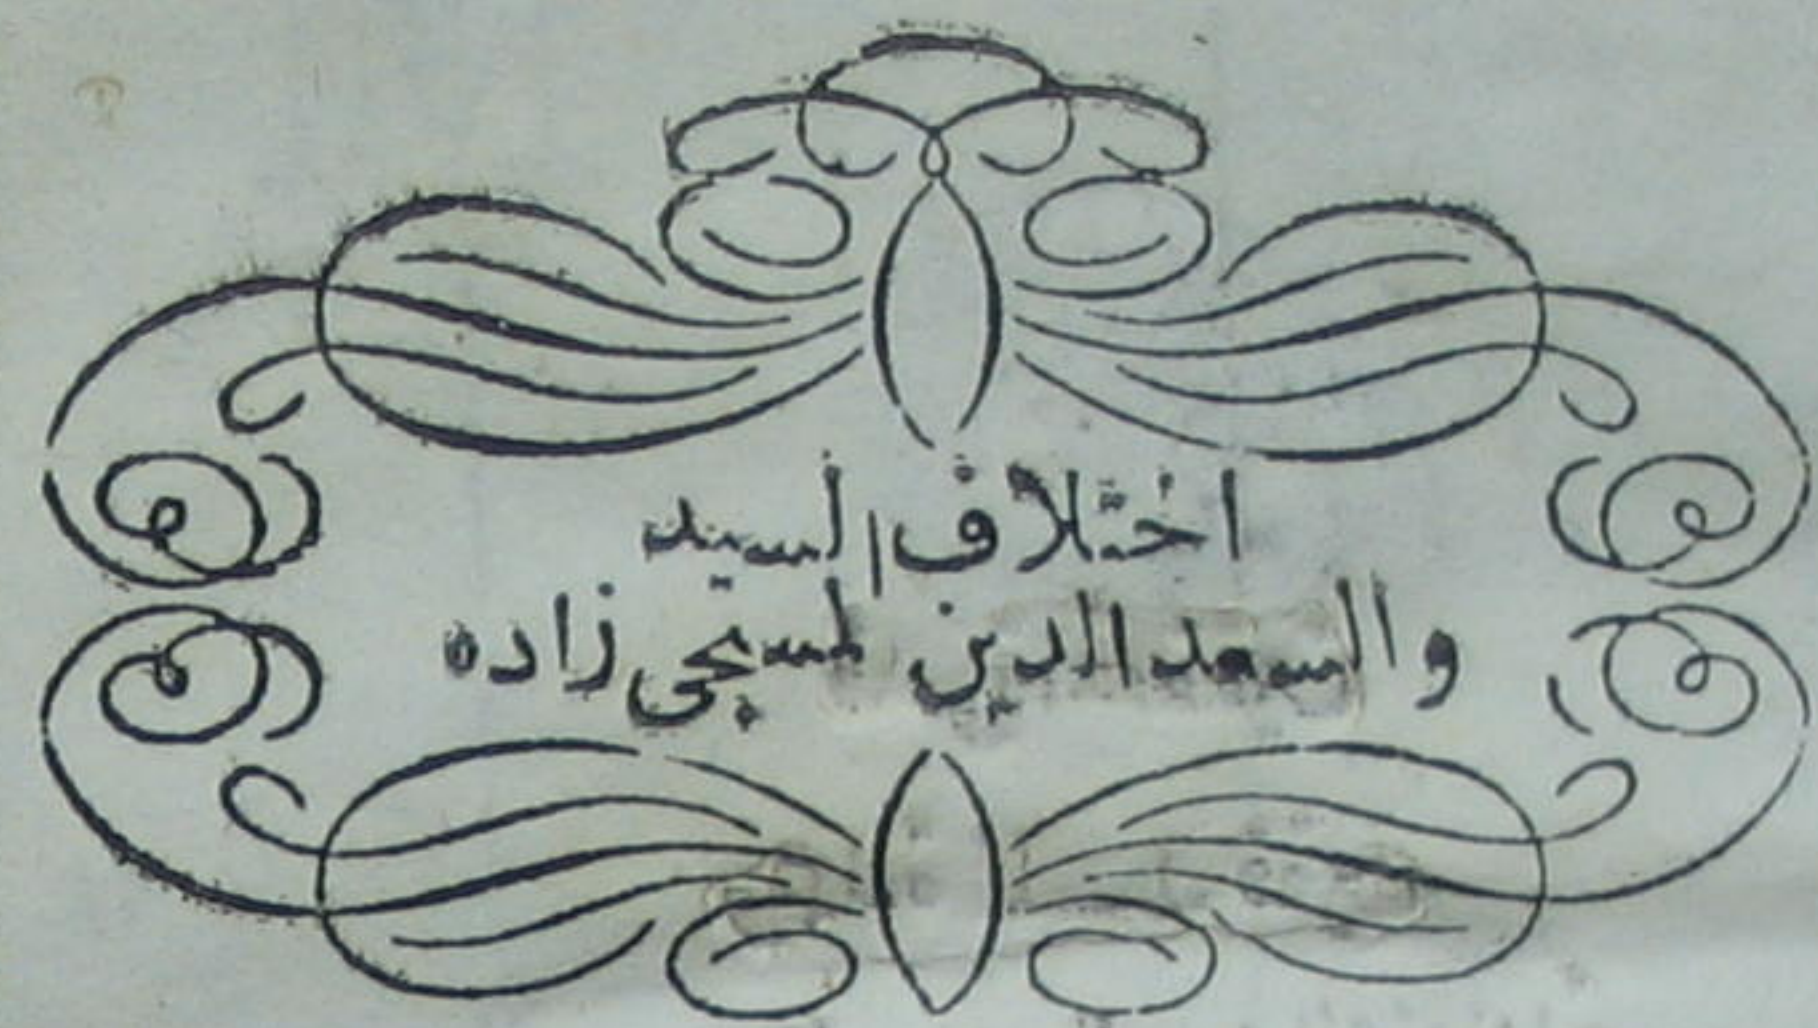 اختلاف السيد
والسعد الدين لمسجى زاده